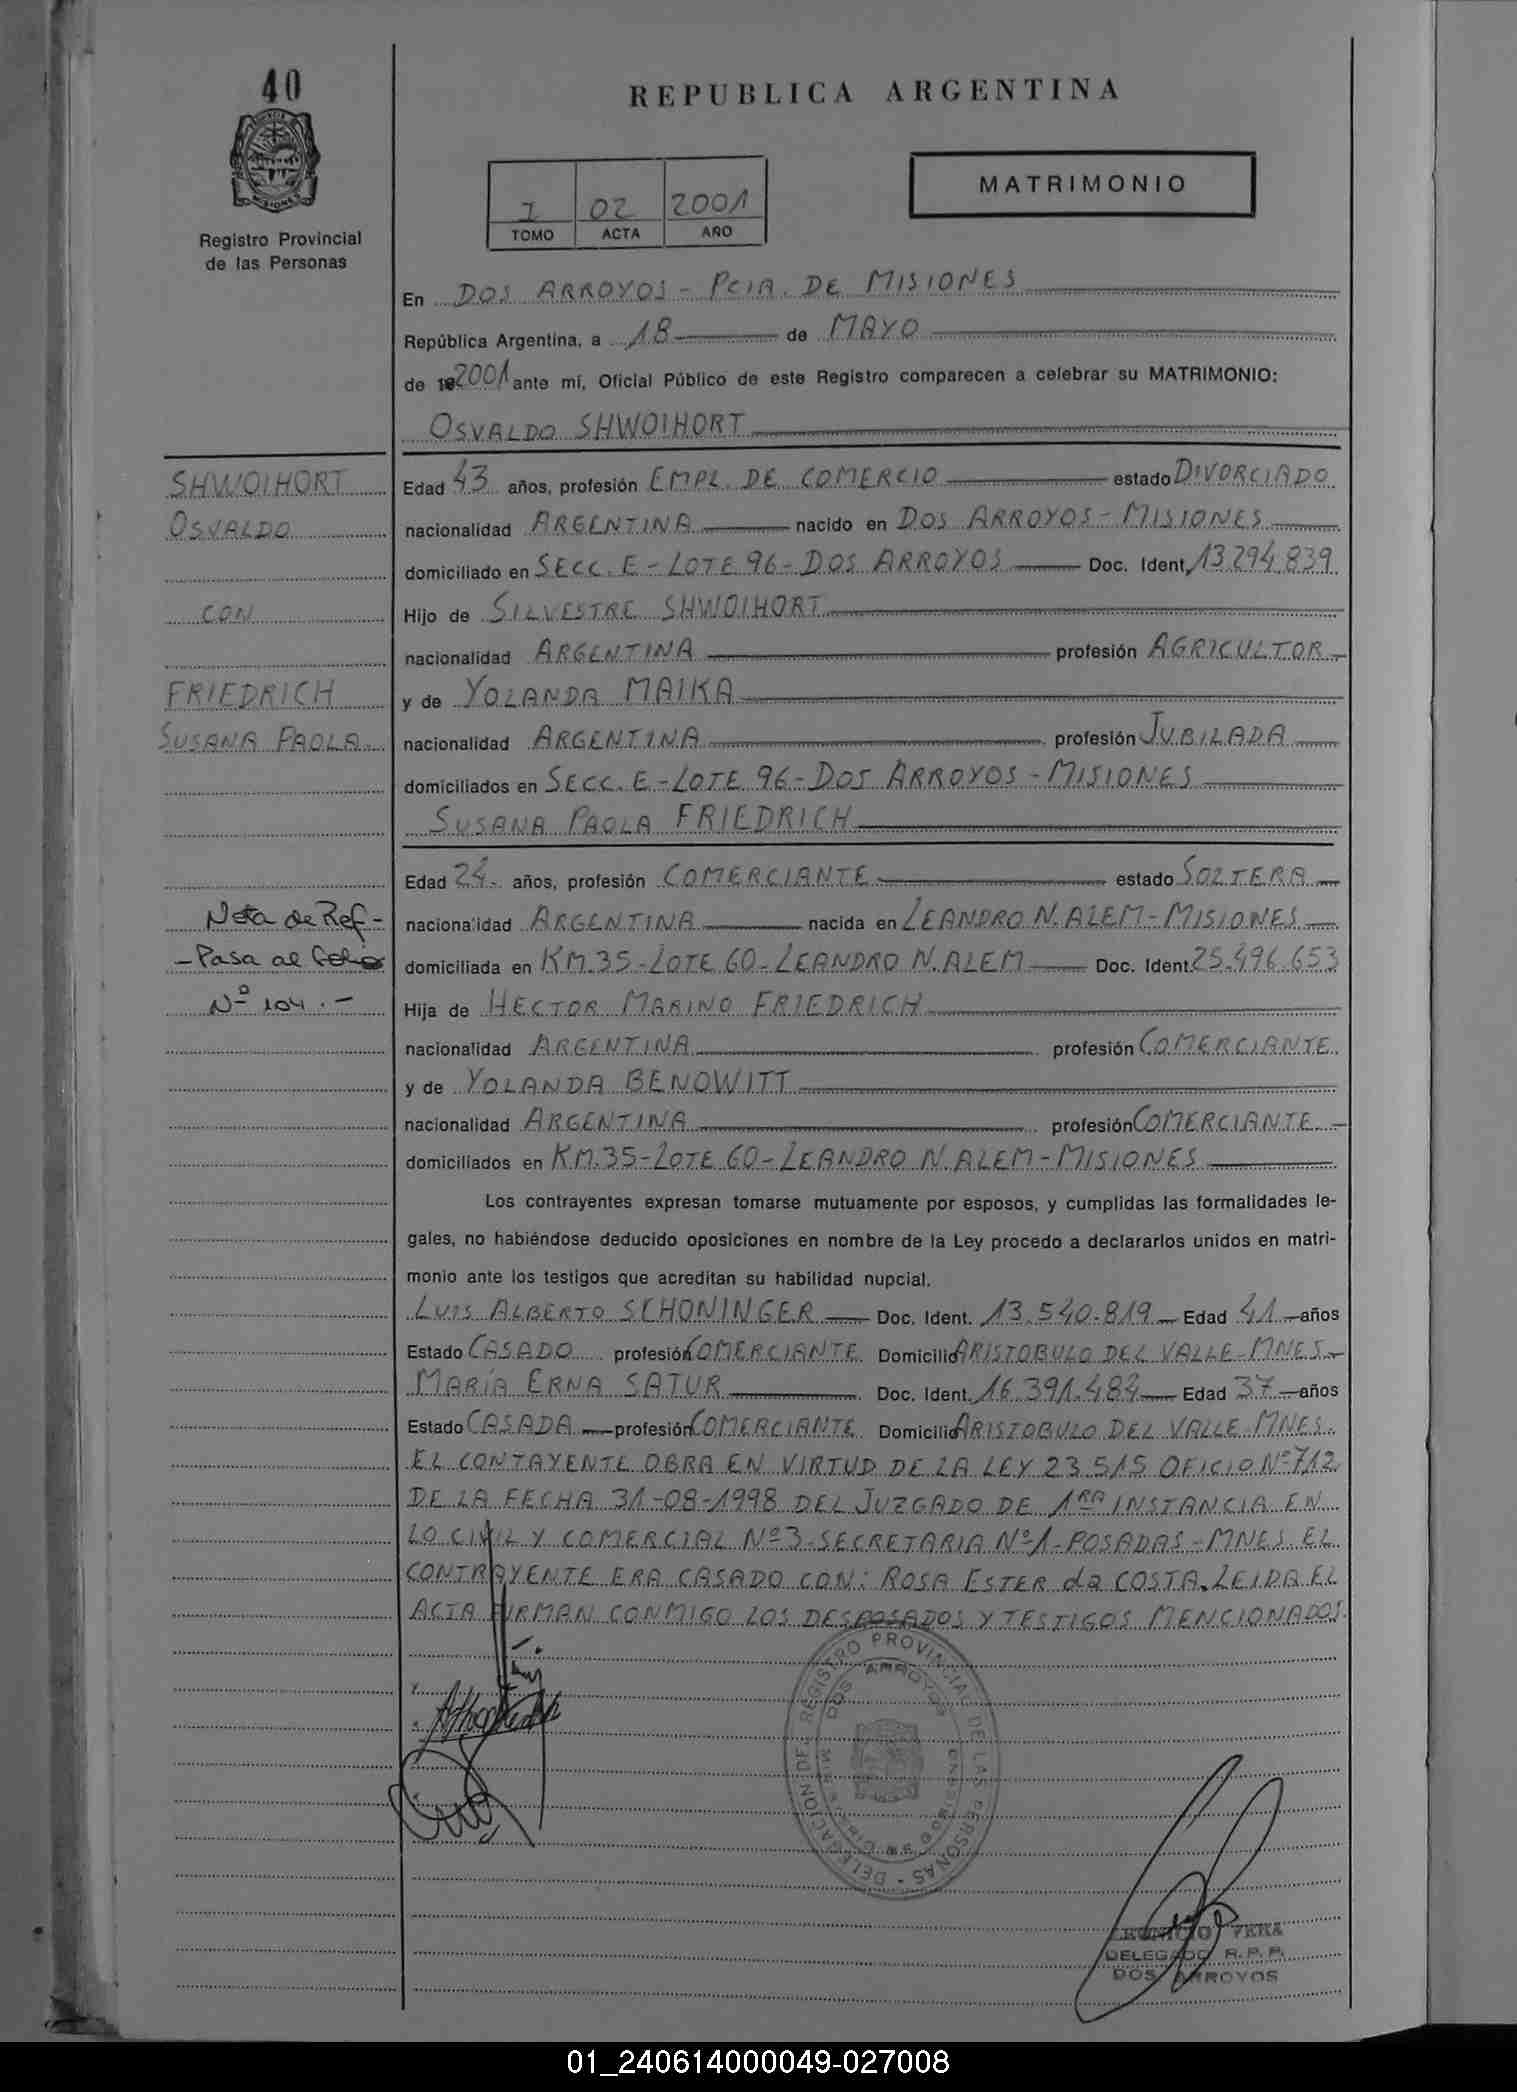 40
REPUBLICA ARGENTINA
MISIONES
Registro Provincial
de las Personas
I 02 2001
TOMO ACTA AÑO
MATRIMONIO
En DOS ARROYOS - PCIA. DE MISIONES
República Argentina, a 18 de MAYO
de 2001 ante mí, Oficial Público de este Registro comparecen a celebrar su MATRIMONIO:
OSVALDO SHWOIHORT
SHWOIHORT
OSVALDO
CON
FRIEDRICH
SUSANA PAOLA
Edad 43 años, profesión EMPL. DE COMERCIO estado DIVORCIADO
nacionalidad ARGENTINA nacido en DOS ARROYOS - MISIONES
domiciliado en SECC. E - LOTE 96 - DOS ARROYOS Doc. Ident. 13.294.839
Hijo de SILVESTRE SHWOIHORT
nacionalidad ARGENTINA profesión AGRICULTOR
y de YOLANDA MAIKA
nacionalidad ARGENTINA profesión JUBILADA
domiciliados en SECC. E - LOTE 96 - DOS ARROYOS - MISIONES
SUSANA PAOLA FRIEDRICH
Edad 24 años, profesión COMERCIANTE estado SOLTERA
nacionalidad ARGENTINA nacida en LEANDRO N. ALEM - MISIONES
domiciliada en KM. 35 - LOTE 60 - LEANDRO N. ALEM Doc. Ident. 25.496.653
Hija de HECTOR MARINO FRIEDRICH
nacionalidad ARGENTINA profesión COMERCIANTE
y de YOLANDA BENOWITT
nacionalidad ARGENTINA profesión COMERCIANTE
domiciliados en KM. 35 - LOTE 60 - LEANDRO N. ALEM - MISIONES
Nota de Ref -
- Pasa al Folio
Nº 104 . -
Los contrayentes expresan tomarse mutuamente por esposos, y cumplidas las formalidades le-
gales, no habiéndose deducido oposiciones en nombre de la Ley procedo a declararlos unidos en matri-
monio ante los testigos que acreditan su habilidad nupcial.
LUIS ALBERTO SCHONINGER Doc. Ident. 13.540.819 Edad 41 años
Estado CASADO profesión COMERCIANTE Domicilio ARISTOBULO DEL VALLE - MNES
MARÍA ERNA SATUR Doc. Ident. 16.391.484 Edad 37 años
Estado CASADA profesión COMERCIANTE Domicilio ARISTOBULO DEL VALLE - MNES.
EL CONTAYENTE OBRA EN VIRTUD DE LA LEY 23.515 OFICIO Nº 712
DE LA FECHA 31-08-1998 DEL JUZGADO DE 1RA INSTANCIA EN
LO CIVIL Y COMERCIAL Nº 3 - SECRETARIA Nº 1 - POSADAS - MNES. EL
CONTRAYENTE ERA CASADO CON: ROSA ESTER da COSTA. LEIDA EL
ACTA FIRMAN CONMIGO LOS DESPOSADOS Y TESTIGOS MENCIONADOS.
DELEGACION DEL REGISTRO PROVINCIAL DE LAS PERSONAS
DOS ARROYOS
VERA
DELEGADO R. P. P.
DOS ARROYOS
01_240614000049-027008